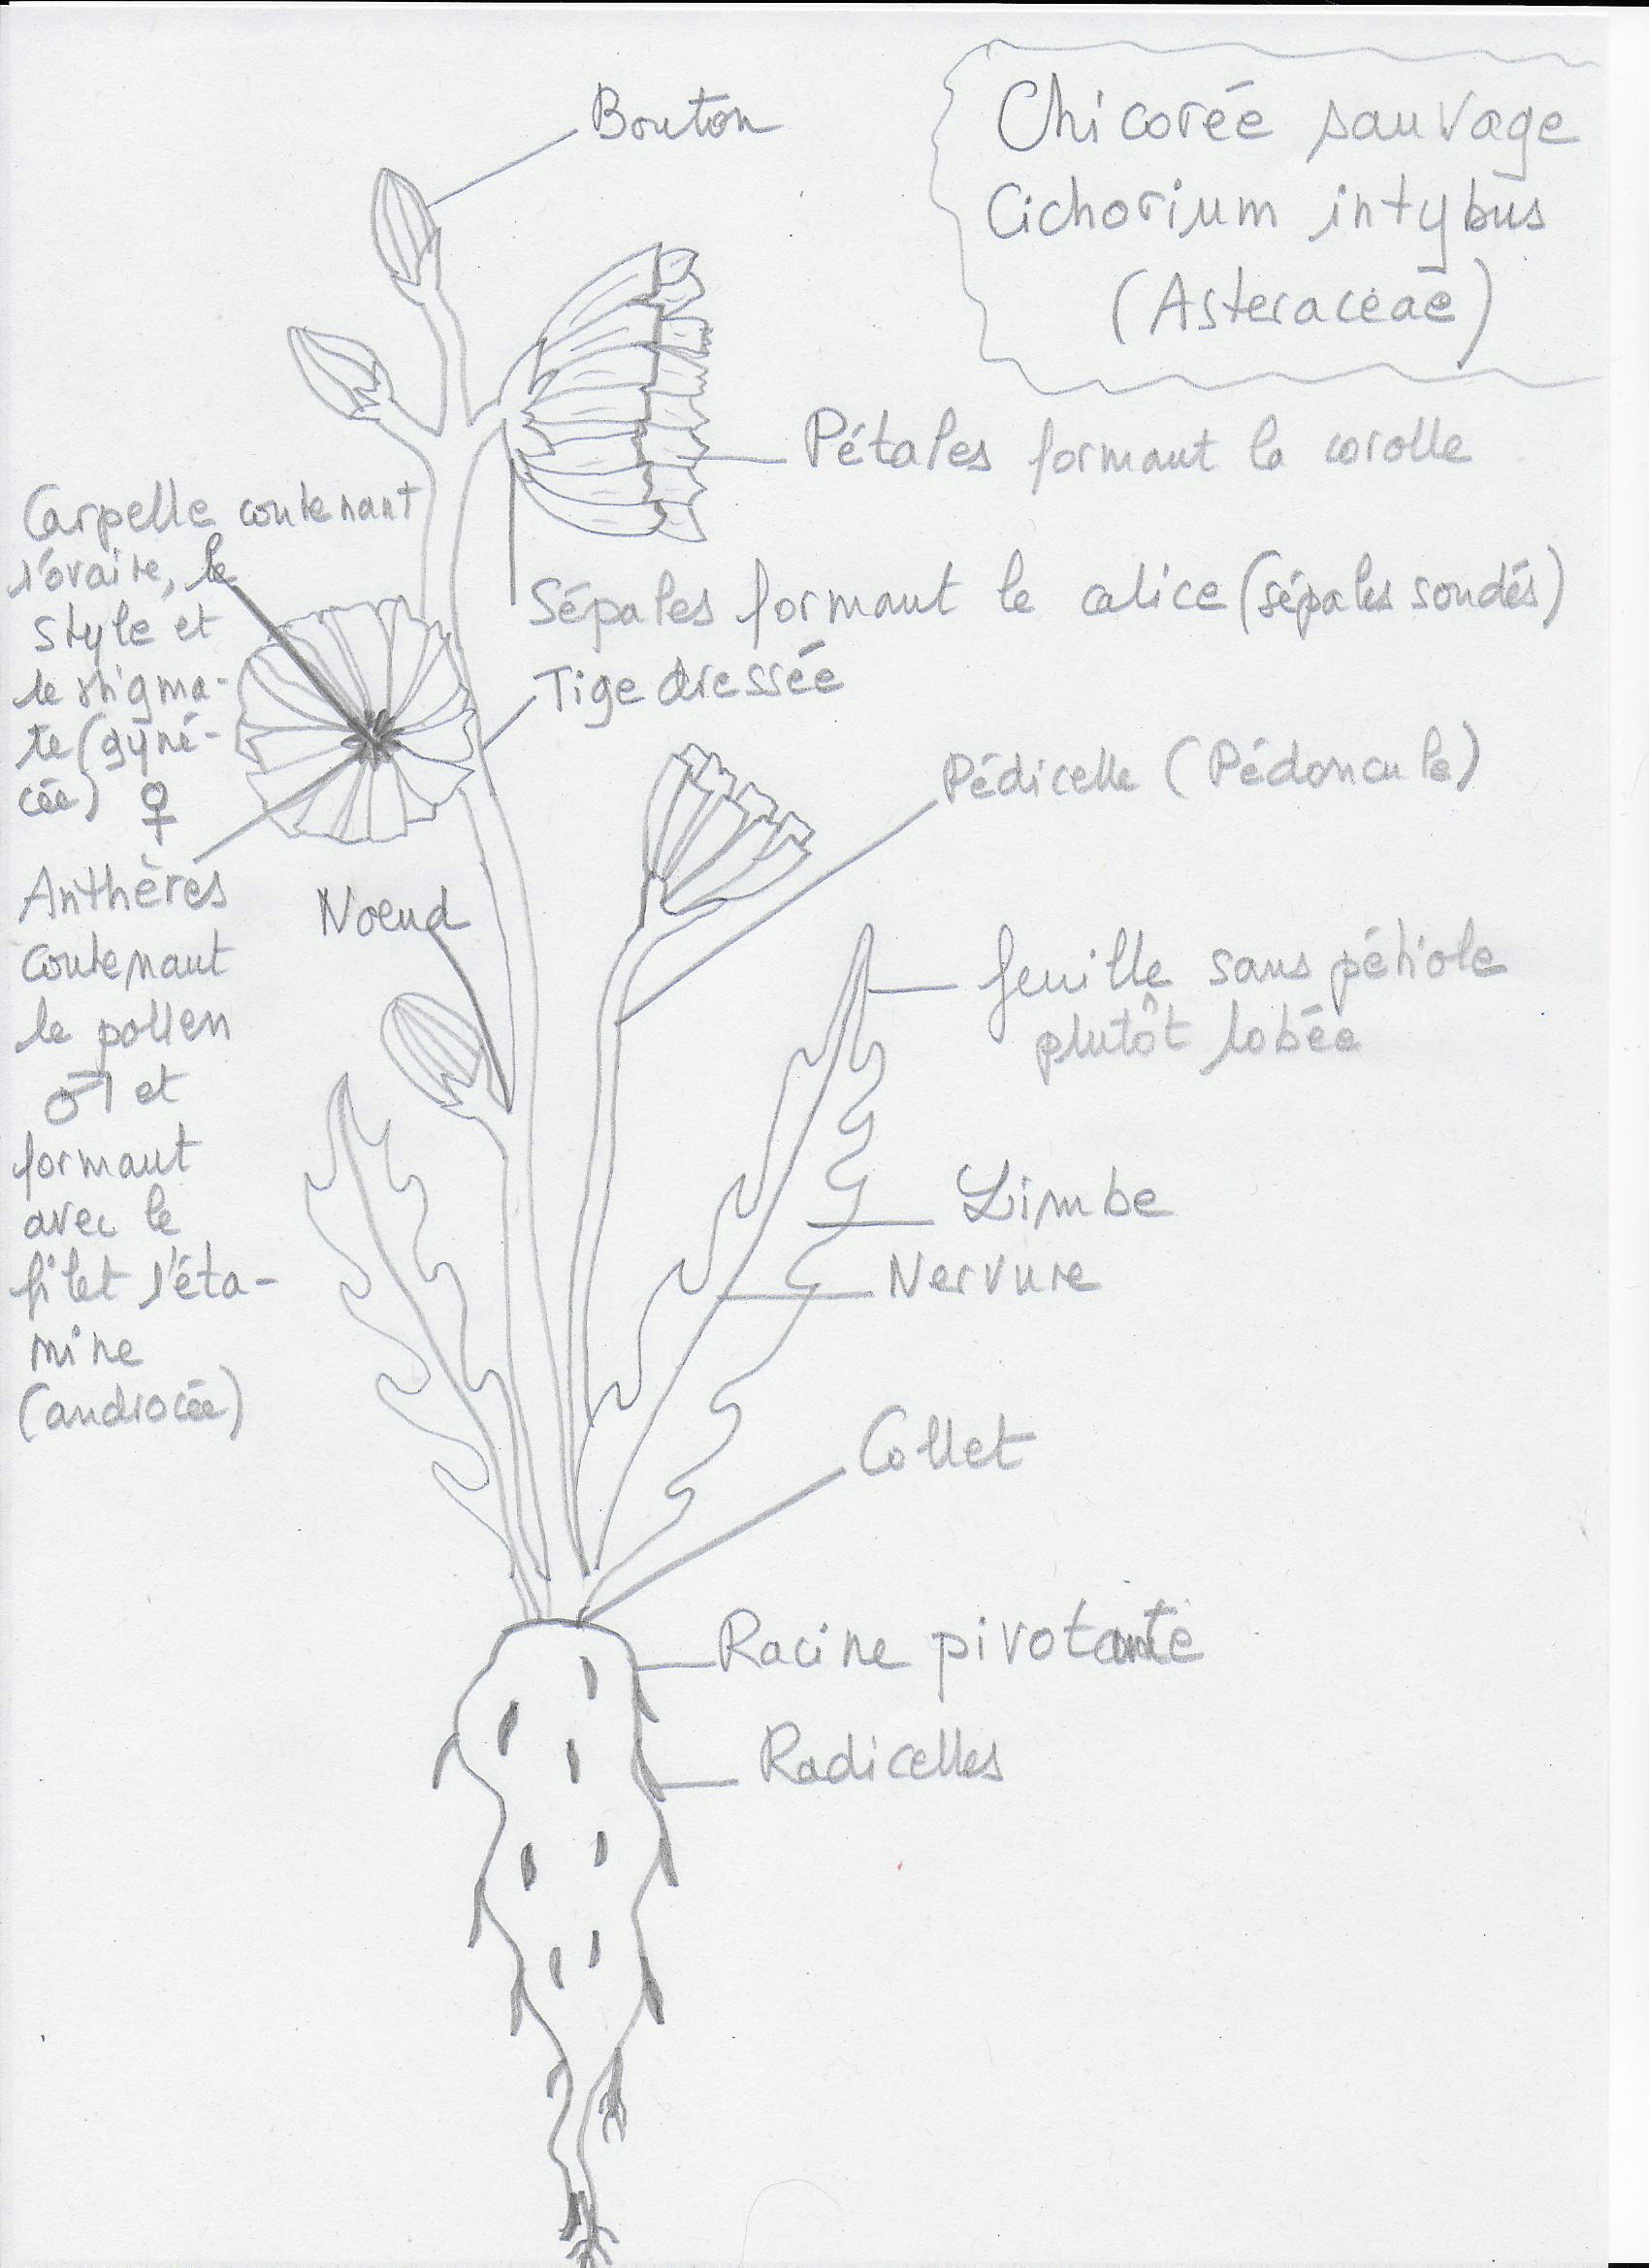 Bouton
Chicorée sauvage
Cichorium intybus
(Asteraceae)
Pétales formant la corolle
Carpelle contenant
l'ovaire, le
style et
le stigma-
te (gyné-
cée) ♀
Sépales formant le calice (sépales soudés)
Tige dressée
Pédicelle (Pédoncule)
Anthères
contenant
le pollen
♂ et
formant
avec le
filet l'éta-
mine
(androcée)
Noeud
feuille sans pétiole
plutôt lobée
Limbe
Nervure
Collet
Racine pivotante
Radicelles